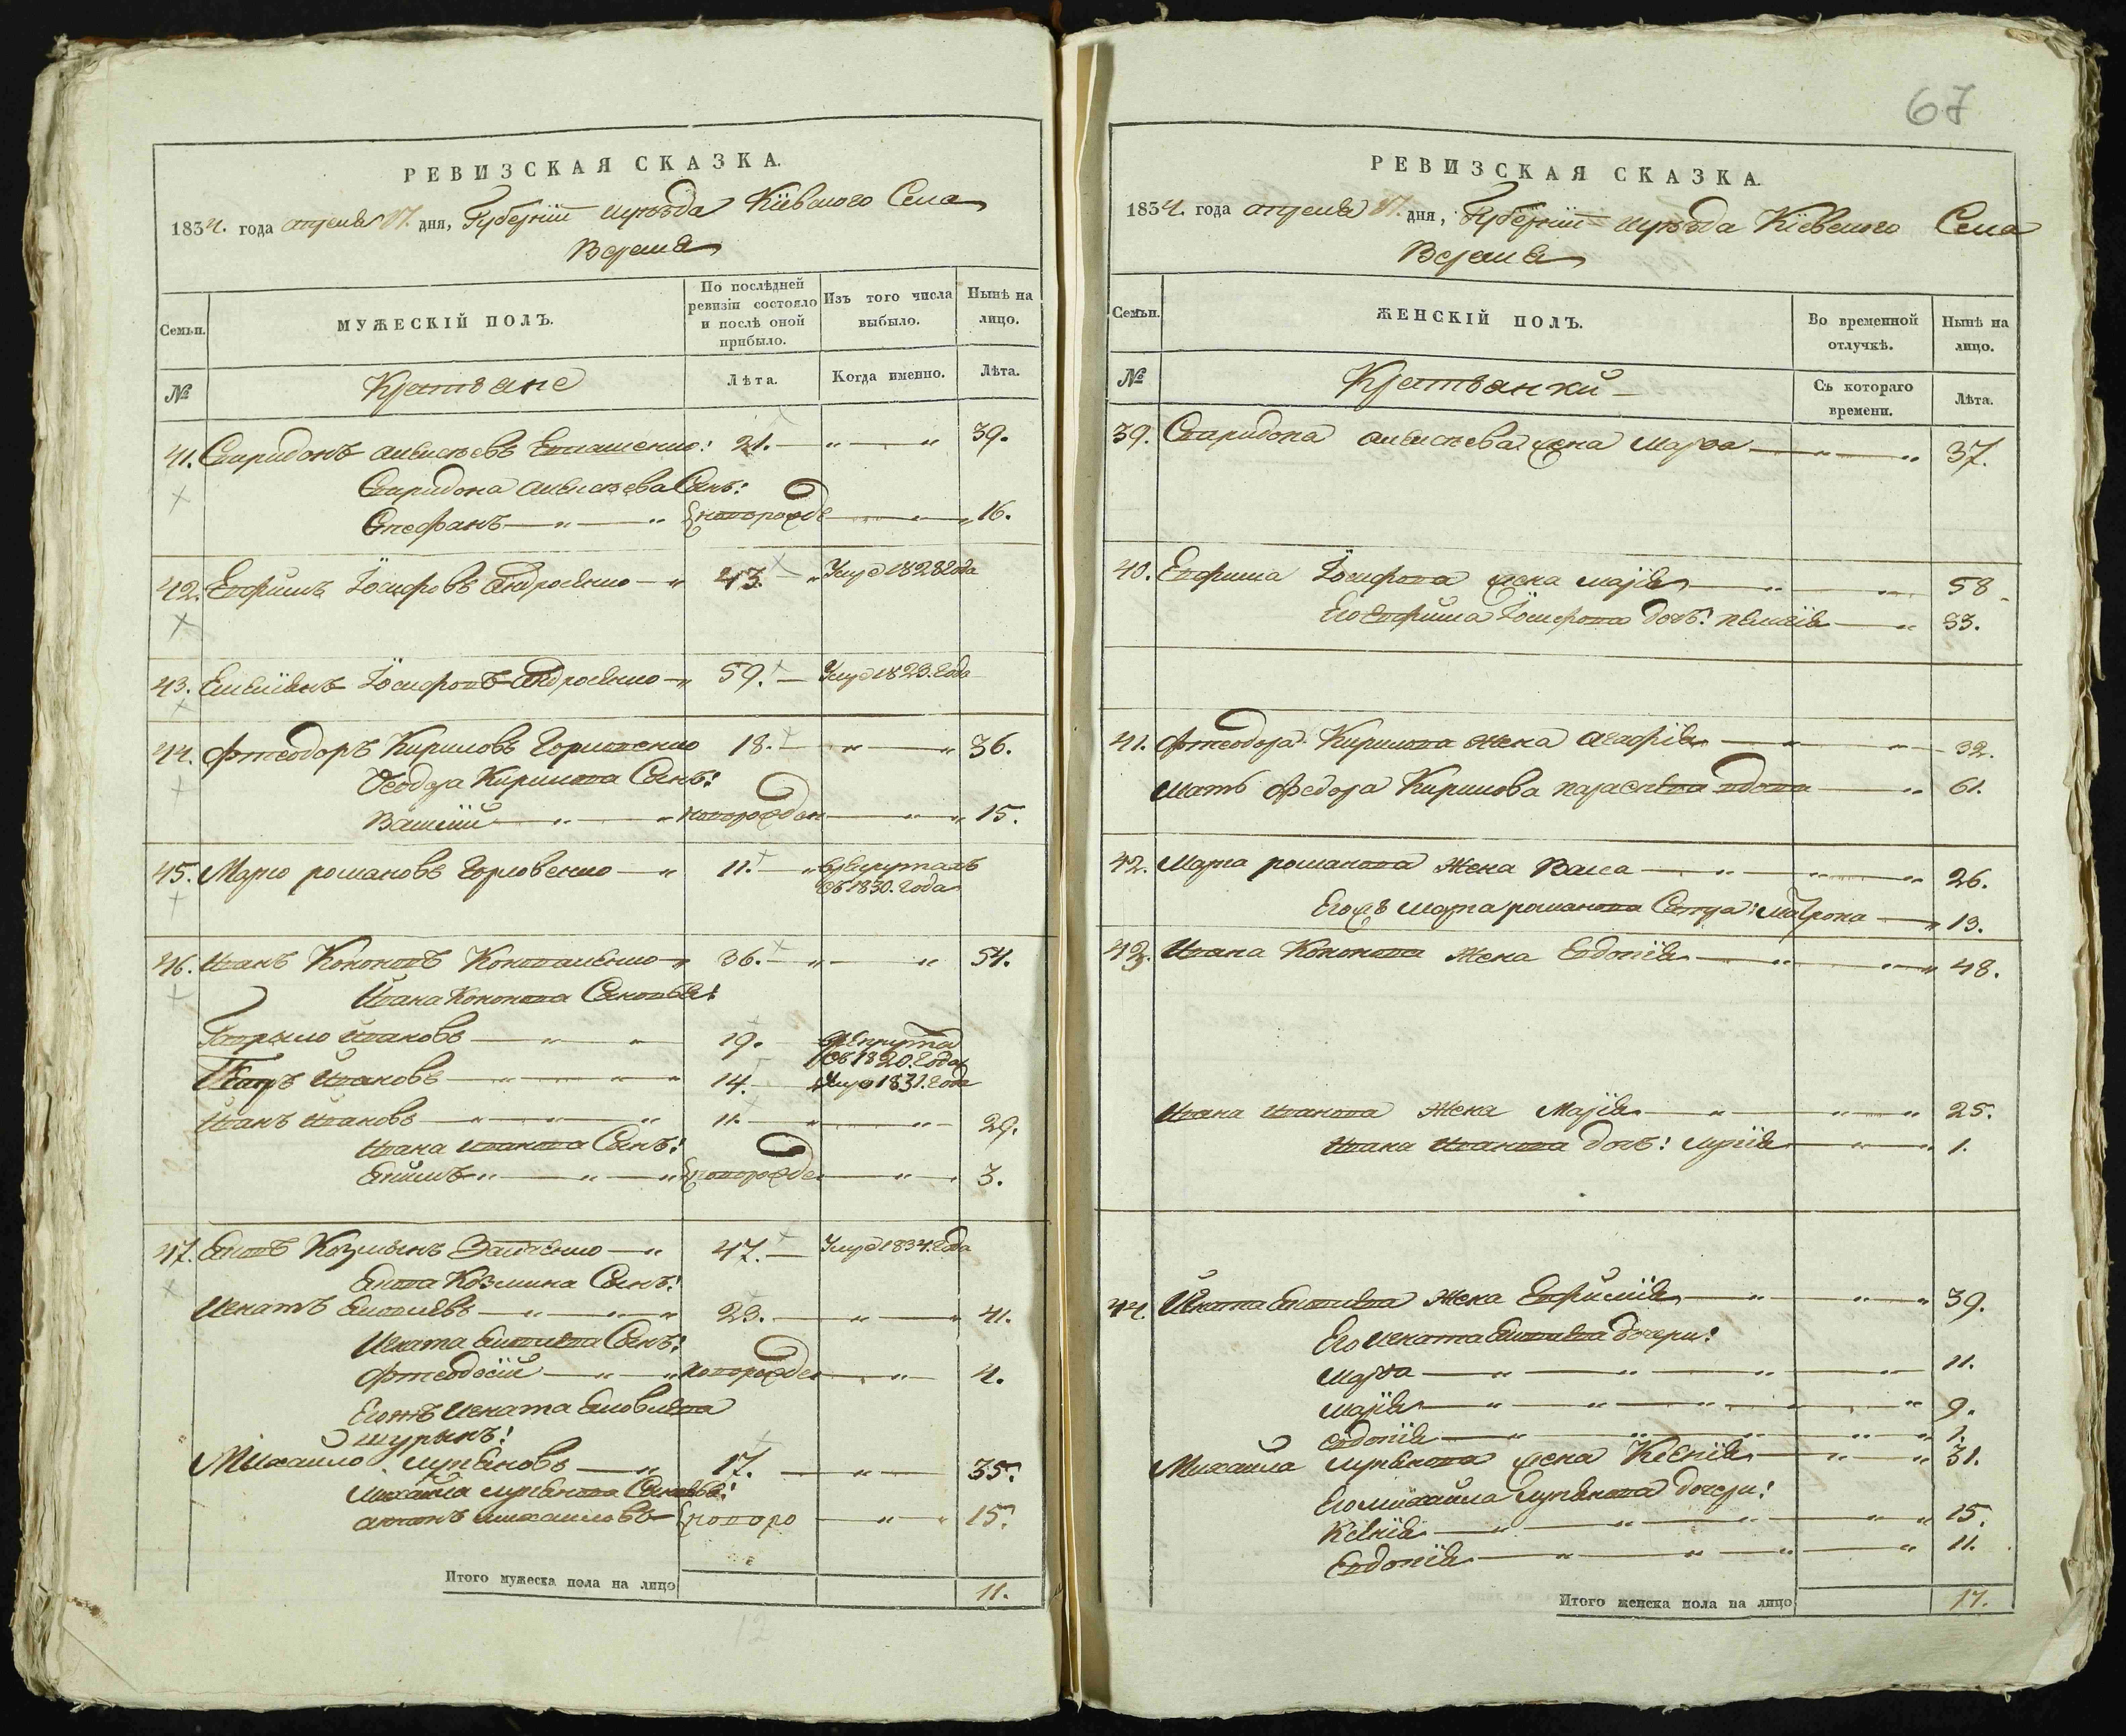 РЕВИЗСКАЯ СКАЗКА.
1834. года апреля дня, Губернiи и уезда Кiевского Села
Веремя
Семьи.
МУЖЕСКІЙ ПОЛЪ.
По послѣдней ревизіи состояло и послѣ оной прибыло.
Изъ того числа выбыло.
Нынѣ на лицо.
№
Крестьяне
Лѣта.
Когда именно.
Лѣта.
41. Спиридонъ 21. 39.
Спиридона Сынъ:
Стефанъ новорожде 16.
42. Ефимъ Іосифовъ Андросенко 43. Умре 1828 года
43. Емелiянъ Іосифовъ Андросенко 59. Умре 1823. года
44. Фтеодоръ Кириловъ 18. 36.
Феодора Кирилова Сынъ:
Василiй новорожден 15.
45. Марко романовъ 11. в рекрутахъ
съ 1830. года
46. Иванъ Кононовъ Коноваленко 36. 54.
Ивана Кононова Сыновья:
Гаврыло Ивановъ 19. в рекрута
съ 1820. года
Петръ Ивановъ 14. Умре 1831. года
Иванъ Ивановъ 11. 29.
Ивана Иванова Сынъ:
Екимъ новорожде 3.
47. Яковъ Козминъ 47. Умре 1834. года
Якова Козмина Сынъ:
Игнатъ Яковлевъ 23. 41.
Игната Яковлева Сынъ:
Фтеодосiй новорожде 4.
Его жъ Игната Яковлева
шурынъ:
Михайло Лукьяновъ 17. 35.
Михайла Лукьянова Сыновья:
антонъ михаиловъ новоро 15.
Итого мужеска пола на лицо 11.
12
67
РЕВИЗСКАЯ СКАЗКА.
1834. года апреля дня, Губернiи и уезда Кiевского Села
Веремя
Семьи.
ЖЕНСКІЙ ПОЛЪ.
Во временной отлучкѣ.
Нынѣ на лицо.
№
Крестьянки
Съ котораго времени.
Лѣта.
39. Спиридона жена Марфа 37.
40. Ефима Іосифова жена марiя 58
Его Ефима Іосифова дочь: 33.
41. Фтеодора Кирилова жена Агафiя 32.
Мать Федора Кирилова параскева вдова 61.
42. Марка романова жена Васса 26.
Его жъ марка романова Сестра: матрона 13.
43. Ивана Кононова жена Евдокiя 48.
Ивана Иванова жена Марiя 25.
Ивана Иванова дочь: 1.
44. Игната Яковлева жена Ефимiя 39.
Его Игната Яковлева дочери:
марфа 11.
марiя 9.
евдокiя 1.
Михайла Лукьянова жена Ксенiя 31.
Его михайла Лукьянова дочери:
Ксенiя 15.
Евдокiя 11.
Итого женска пола на лицо 17.